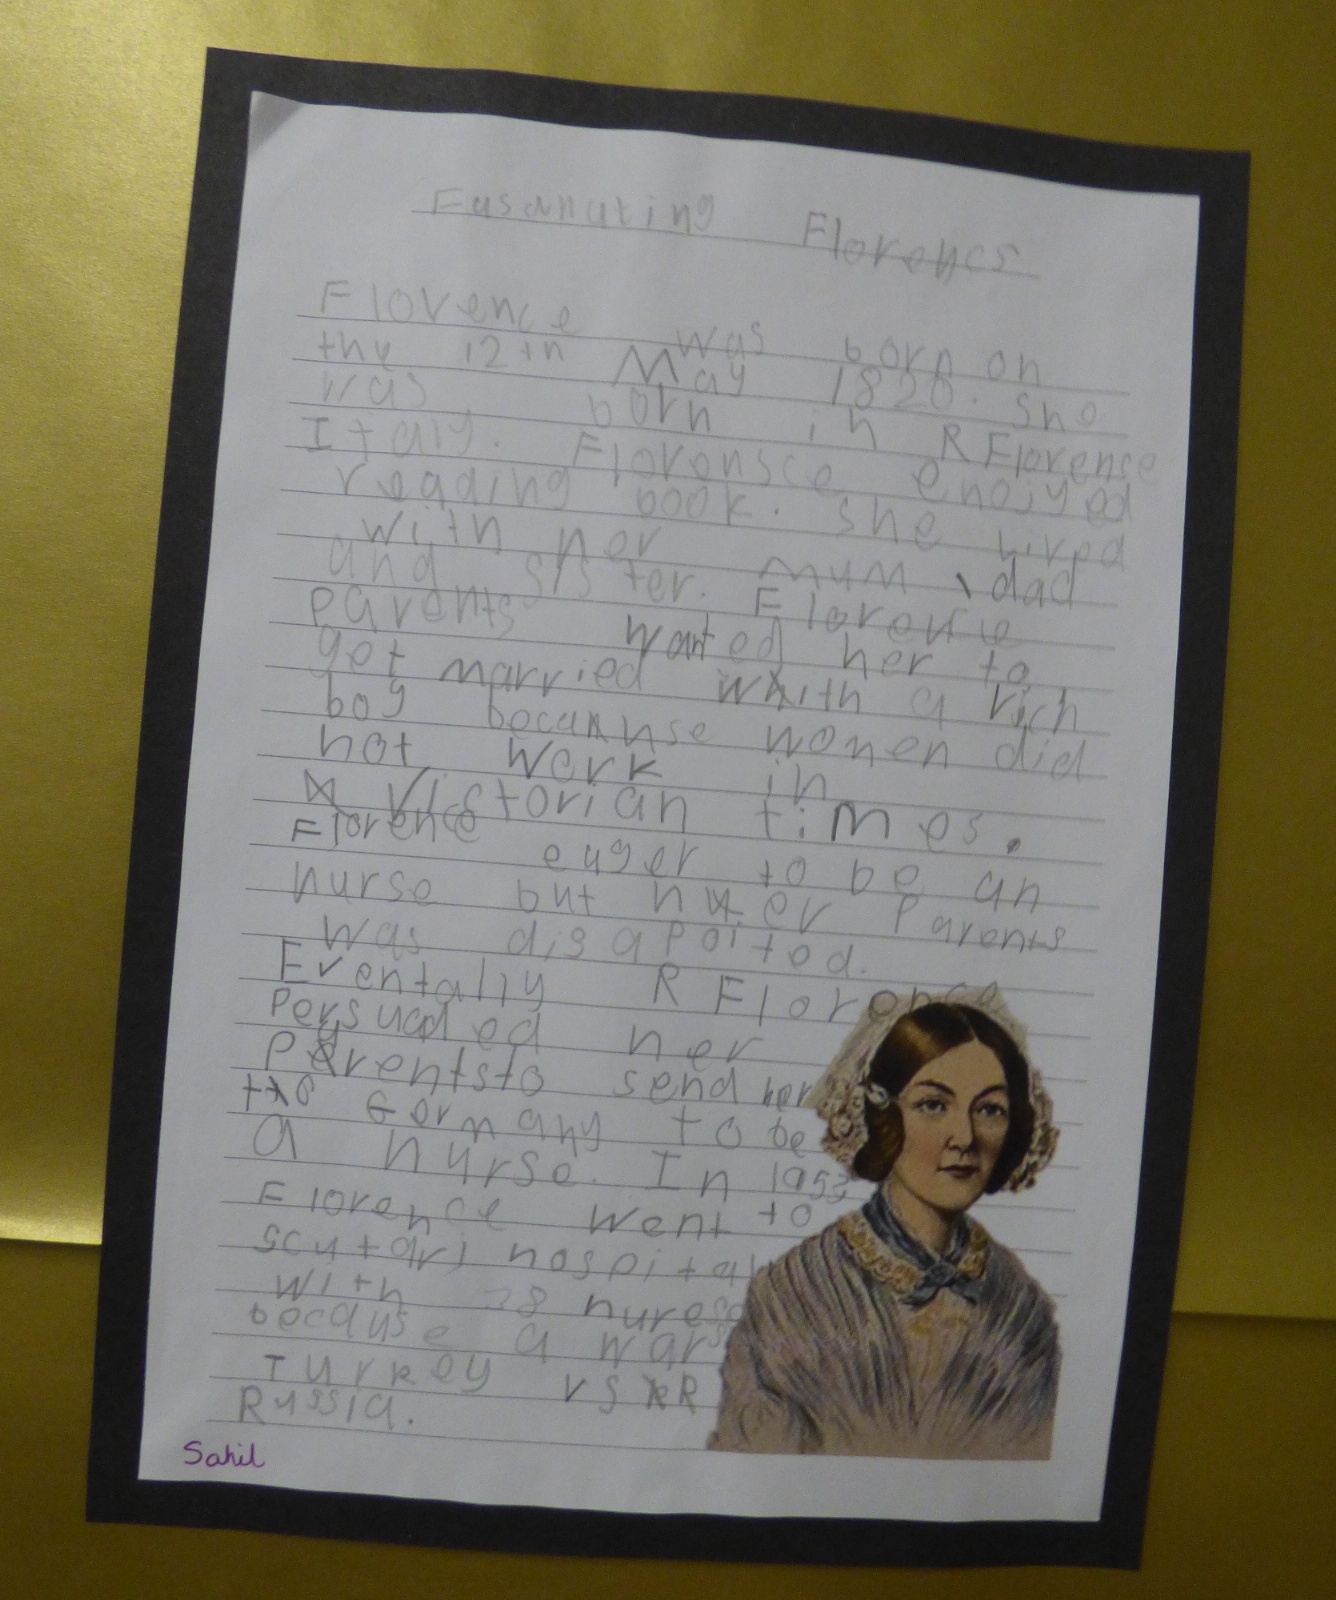 Fusanuting Florencs
Florence was born on
the 12th May 1820. She
was born in R Florence
Italy. Floronsce enojyed
reading book. she lived
with her mum, dad
and sister. Florence
parents wanted her to
get married whith a rich
boy becaunse women did
not work in
Victorian times.
Florence euger to be an
nurse but her Parents
was disapoited.
Eventally R Florence
Persuaded her
Parentsto send her
to Germany to be
a nurse. In 1953
Florence went to
scutari hospital
with 38
because a war
Turkey vs R
Russia.
Sahil